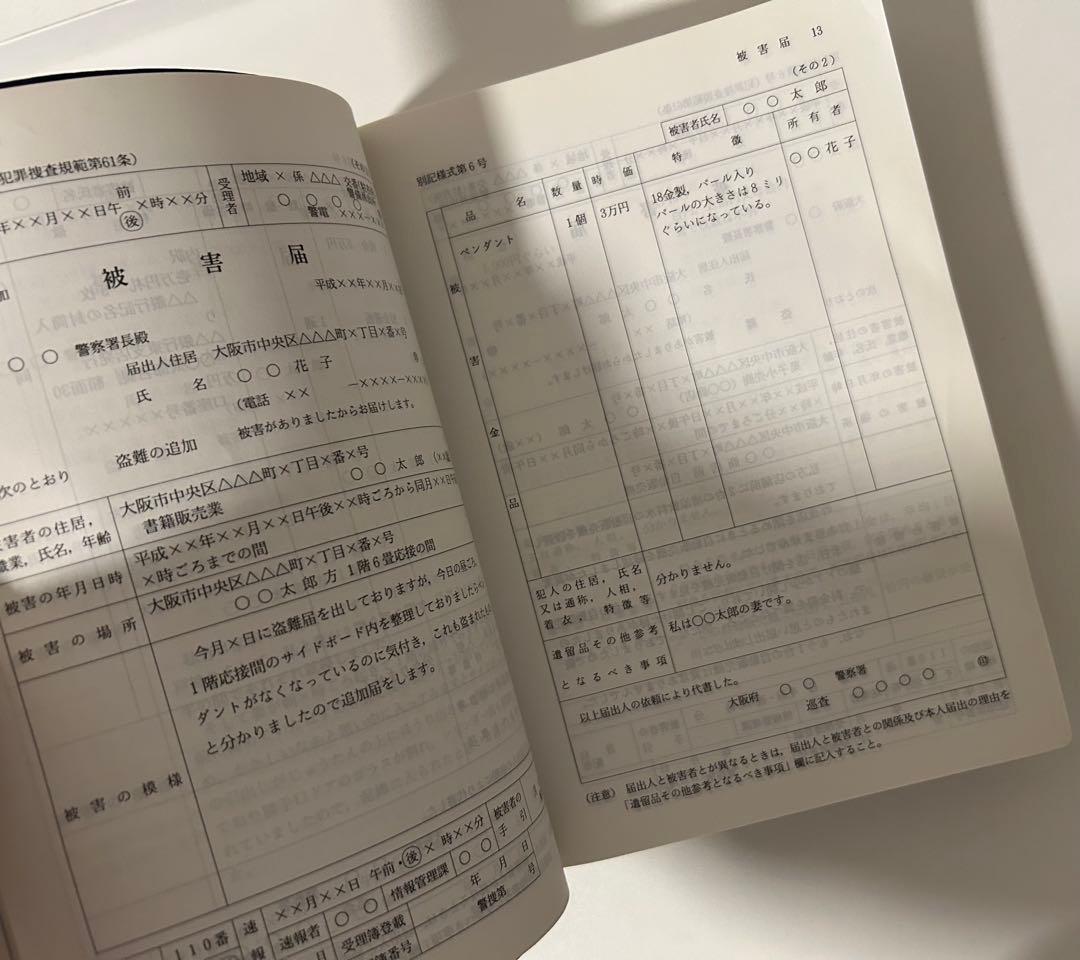 犯罪捜査規範第61条)
年××月××日午 前 後 ×時××分
受理者
地域 × 係 △△△
○ ○ ○ ○
警電
被害届
平成××年××月
○ ○ 警察署長殿
届出人住居 大阪市中央区△△△町×丁目×番×号
氏 名 ○ ○ 花 子
(電話 ×× ―××××―×××
次のとおり 盗難の追加 被害がありましたからお届けします。
害者の住居,
職業, 氏名, 年齢
大阪市中央区△△△町×丁目×番×号
書籍販売業 ○ ○ 太 郎
被害の年月日時
平成××年××月××日午後××時ごろから同月××日午
×時ごろまでの間
被害の場所
大阪市中央区△△△町×丁目×番×号
○ ○ 太 郎 方 1階6畳応接の間
被害の模様
今月×日に盗難届を出しておりますが, 今日の昼ごろ,
1階応接間のサイドボード内を整理しておりましたらペン
ダントがなくなっているのに気付き, これも盗まれたもの
と分かりましたので追加届をします。
110番
速報
××月××日 午前・後 × 時××分
速報者 ○ ○ 情報管理課 ○ ○
被害者の手引
受理簿登載
年 月 日
警捜第 号
簿番号
被害届 13
別記様式第6号
(その2)
被害者氏名 ○ ○ 太 郎
被害金品
品名 数量 時価 特徴 所有者
ペンダント 1個 3万円 18金製, パール入り ○○花子
パールの大きさは8ミリ
ぐらいになっている。
犯人の住居, 氏名
又は通称, 人相,
着衣, 特徴等
分かりません。
遺留品その他参考
となるべき事項
私は○○太郎の妻です。
以上届出人の依頼により代書した。
大阪府 ○ ○ 警察署
巡査 ○ ○ ○ ○ ㊞
(注意) 届出人と被害者とが異なるときは, 届出人と被害者との関係及び本人届出の理由を
「遺留品その他参考となるべき事項」欄に記入すること。